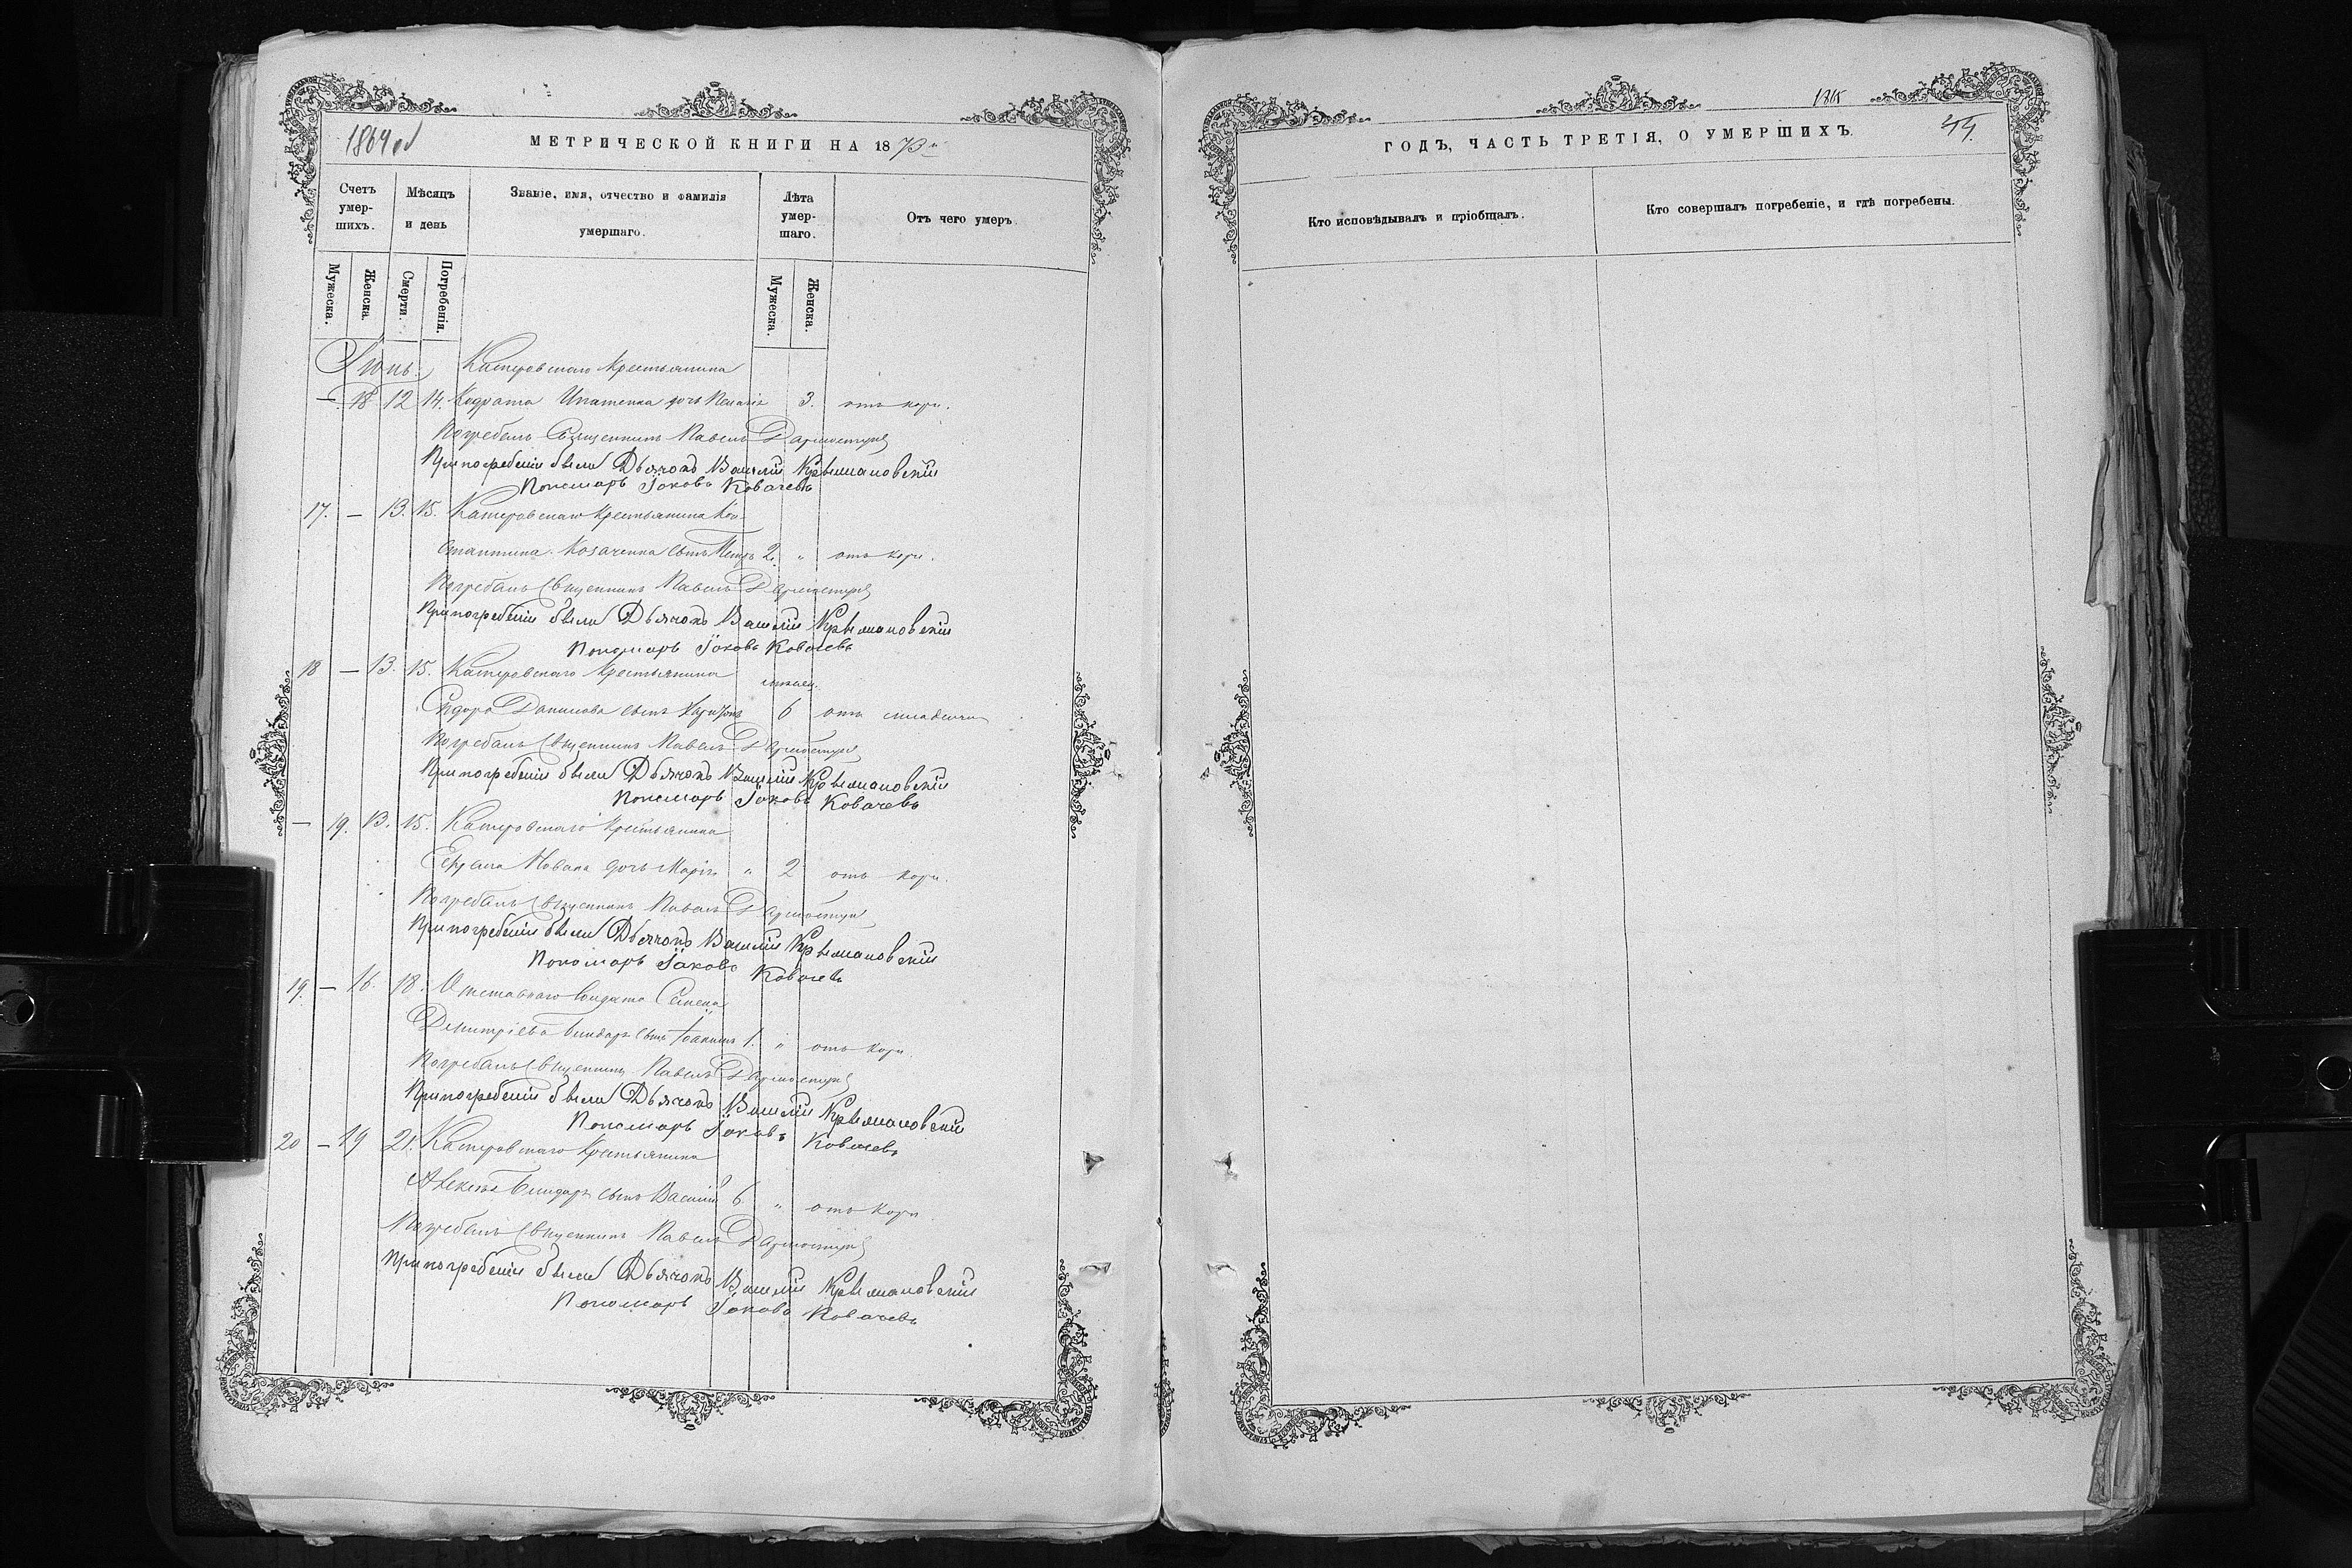 1864 об
МЕТРИЧЕСКОЙ КНИГИ НА 1873й
Счетъ умер-шихъ.
Мѣсяцъ и день
Званіе, имя, отчество и фамилія умершаго.
Лѣта умер-шаго.
Отъ чего умеръ.
Мужеска.
Женска.
Смерти.
Погребенія.
Мужеска.
Женска.
Іюнь. Катеровскаго Крестьянина
—. 18 12 14. Кодрата Игнатенка дочь 3. отъ кори.
Погребалъ Священникъ Павелъ
При погребеніи были Дьячокъ Василій Крыжановскій
Пономарь Іаковъ Ковачевъ
17. — 13. 15. Катеровскаго Крестьянина Кон-
стантина Козаченка сынъ Петръ 2. " отъ кори.
Погребалъ Священникъ Павелъ
При погребеніи были Дьячокъ Василій Крыжановскій
Пономарь Іаковъ Ковачевъ
18 — 13. 15. Катеровскаго Крестьянина
Сидора Данилова сынъ 6 отъ
Погребалъ Священникъ Павелъ
При погребеніи были Дьячокъ Василій Крыжановскій
Пономарь Іаковъ Ковачевъ
— 19. 13. 15. Катеровскаго Крестьянина
Новака дочь Марія " 2 отъ кори.
Погребалъ Священникъ Павелъ
При погребеніи были Дьячокъ Василій Крыжановскій
Пономарь Іаковъ Ковачевъ
19. — 16. 18. Отставнаго Солдата Семена
Дмитріева сынъ Іоаннъ 1. " отъ кори.
Погребалъ Священникъ Павелъ
При погребеніи были Дьячокъ Василій Крыжановскій
Пономарь Іаковъ Ковачевъ
20 — 19 21. Катеровскаго Крестьянина
Алексѣя сынъ Василій 6 " отъ кори
Погребалъ Священникъ Павелъ
При погребеніи были Дьячокъ Василій Крыжановскій
Пономарь Іаковъ Ковачевъ
ГОДЪ, ЧАСТЬ ТРЕТІЯ, О УМЕРШИХЪ.
Кто исповѣдывалъ и пріобщалъ.
Кто совершалъ погребеніе, и гдѣ погребены.